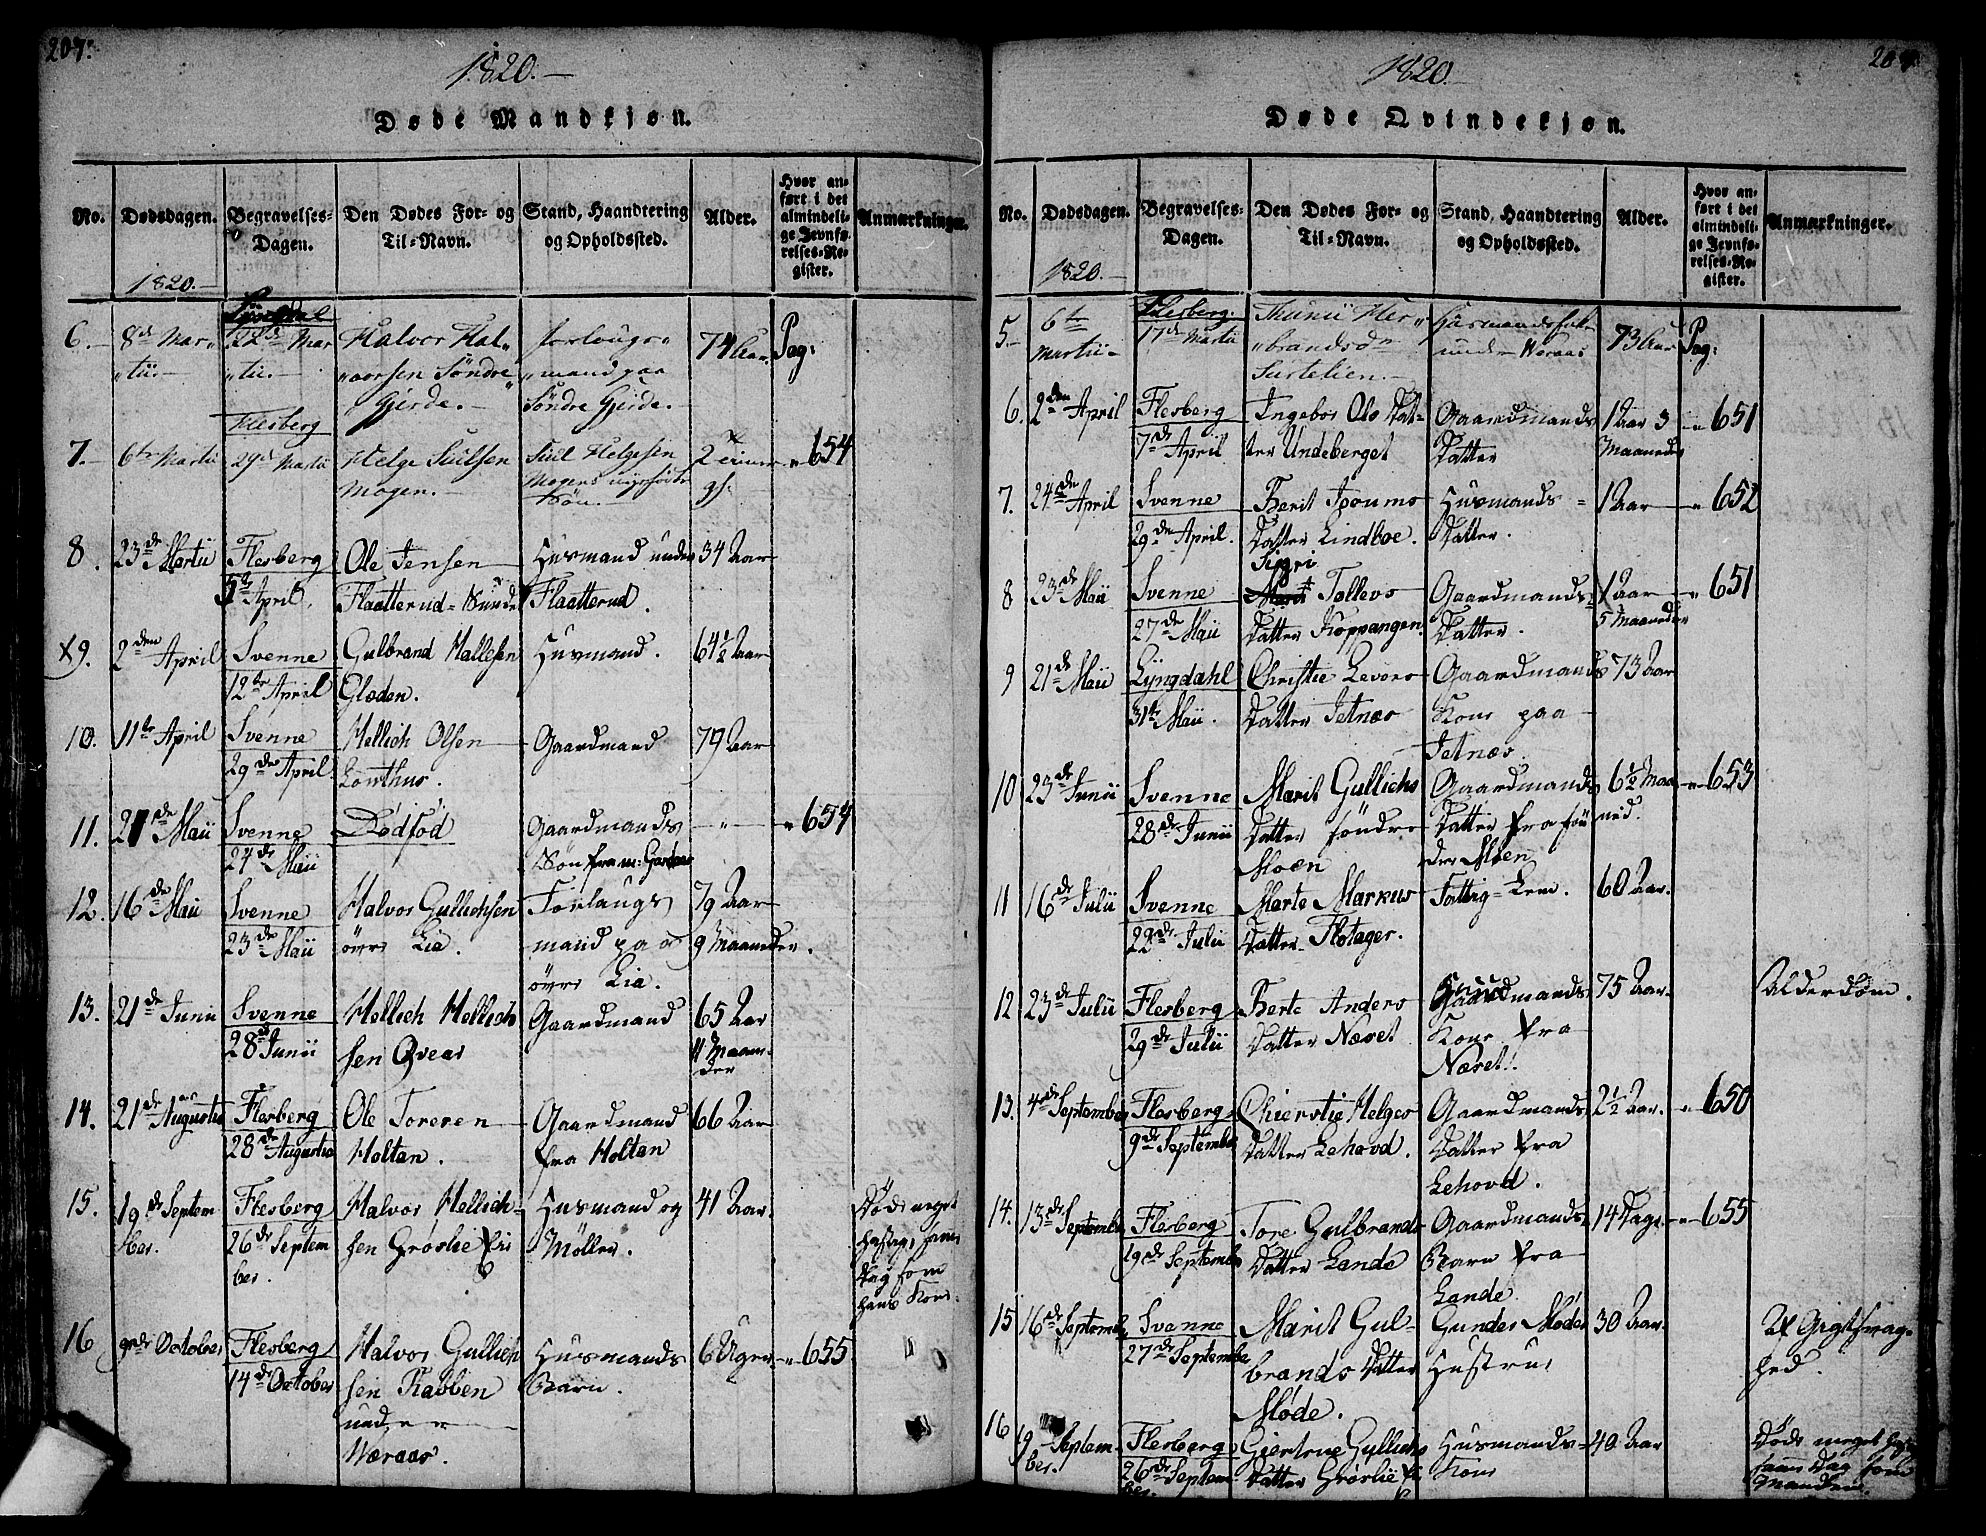 207.
1820.
Døde Mandkjøn.
No.
Dødsdagen.
Begravelses-
Dagen.
Den Dødes For- og
Til-Navn.
Stand, Haandtering
og Opholdssted.
Alder.
Hvor an-
ført i det
almindeli-
ge Jevnfø-
relses-Re-
gister.
Anmærkninger.
1820.
6. 8de Mar-
tii.
Lyngdal
22de Mar
tii.
Halvor Hal-
vorsen Søndre
Gjerde.
forlougs-
mand paa
Søndre Gjerde.
74 Aar.
Pag:
7. 6te Martii
Flesberg
29de Martii
Helge
Mogen.
Helgesen
Mogens
Søn.
2
654
8. 23de Martii
Flesberg
5te April.
Ole Jensen
Flaatterud
Husmand under
Flaatterud.
34 Aar
x9. 2den April
Svenne
12te April
Gulbrand Hallesen
Gloden.
Husmand.
64½ Aar
10. 11te April
Svenne
29de April
Hellich Olsen
Lonthus.
Gaardmand
79 Aar
11. 21de Maii
Svenne
24de Maii
Dødfød
Gaardmands
Søn fra
654
12. 16de Maii
Svenne
23de Maii
Halvor Gullichsen
øvre Lia.
Forlaugs
mand paa
øvre Lia.
79 Aar
9 Maaneder.
13. 21de Junii
Svenne
28de Junii
Hellich Hellich
sen Qvear
Gaardmand
65 Aar
11 Maane-
der
14. 21de Augustii
Flesberg
28de Augustii
Ole Toreren
Holtan.
Gaardmand
fra Holtan
66 Aar
15. 19de Septem
ber.
Flesberg
26de Septem
ber.
Halvor Hellich-
sen Grøslie
Husmand og
Møller.
41 Aar.
Døde meget
hastig, samme
Dag som
hans Kone.
16 9nde October
Flesberg
14de October
Halvor Gullich
sen Rabben
under
Væraas.
Husmands
Barn.
6 Uger.
655
1820.
Døde Qvindekjøn.
No.
Dødsdagen.
Begravelses-
Dagen.
Den Dødes For- og
Til-Navn.
Stand, Haandtering
og Opholdssted.
Alder.
Hvor an-
ført i det
almindeli-
ge Jevnfø-
relses-Re-
gister.
Anmærkninger.
1820.
5. 6te
Martii
Flesberg.
17de Martii
Her-
brandsdr
under Woraas
73 Aar
Pag:
6. 2den April
Flesberg
7de April
Ingebor Ols Dat-
ter Undeberget
Gaardmands
Datter
1 Aar 3
Maaneder
651
7. 24de April
Svenne
29de April.
Berit
Datter Lindboe.
Husmands
Datter.
1 Aar
652
8 23de Maii
Svenne
27de Maii
Sigri
Marit Tollevs
Datter Koppangen.
Gaardmands
Datter.
1 Aar
5 Maaneder
651
9 21de Maii
Lyngdahl
31te Maii.
Christie Levors
Datter Jetnæs
Gaardmands
Kone paa
Jetnæs
73 Aar
10 23de Junii
Svenne
28de Junii
Marit Gullichs
Datter søndre
Moen
Gaardmands
Datter fra søn
dre Moen
6½ Maa
ned.
653
11 16de Julii
Svenne
22de Julii
Merte Markus
Datter Flotager.
Fattig-Lem.
60 Aar.
12 23de Julii
Flesberg
29de Julii
Berte Anders
Datter Næset
Huusmands
Kone fra
Næset.
75 Aar.
Alderdom.
13. 4de September
Flesberg
9de September
Chierstie Helges
Datter Lehovd.
Gaardmands
Datter fra
Lehovd.
2½ Aar.
650
14. 13de September
Flesberg
19de September
Tore Gulbrands
Datter Lande
Gaardmands
Barn fra
Lande.
14 Dage
655
15 16de September
Svenne
27de September
Marit Gul-
brands Datter
Møde.
Gunder Mødes
Hustru
30 Aar.
Af Gigtsvag-
hed.
16 19 Septem-
ber.
Flesberg
26de Septem-
ber.
Giertrue Gullichs
Datter Grøslie
Husmands-
Kone
40 Aar
Døde meget
samme Dag som
Manden.